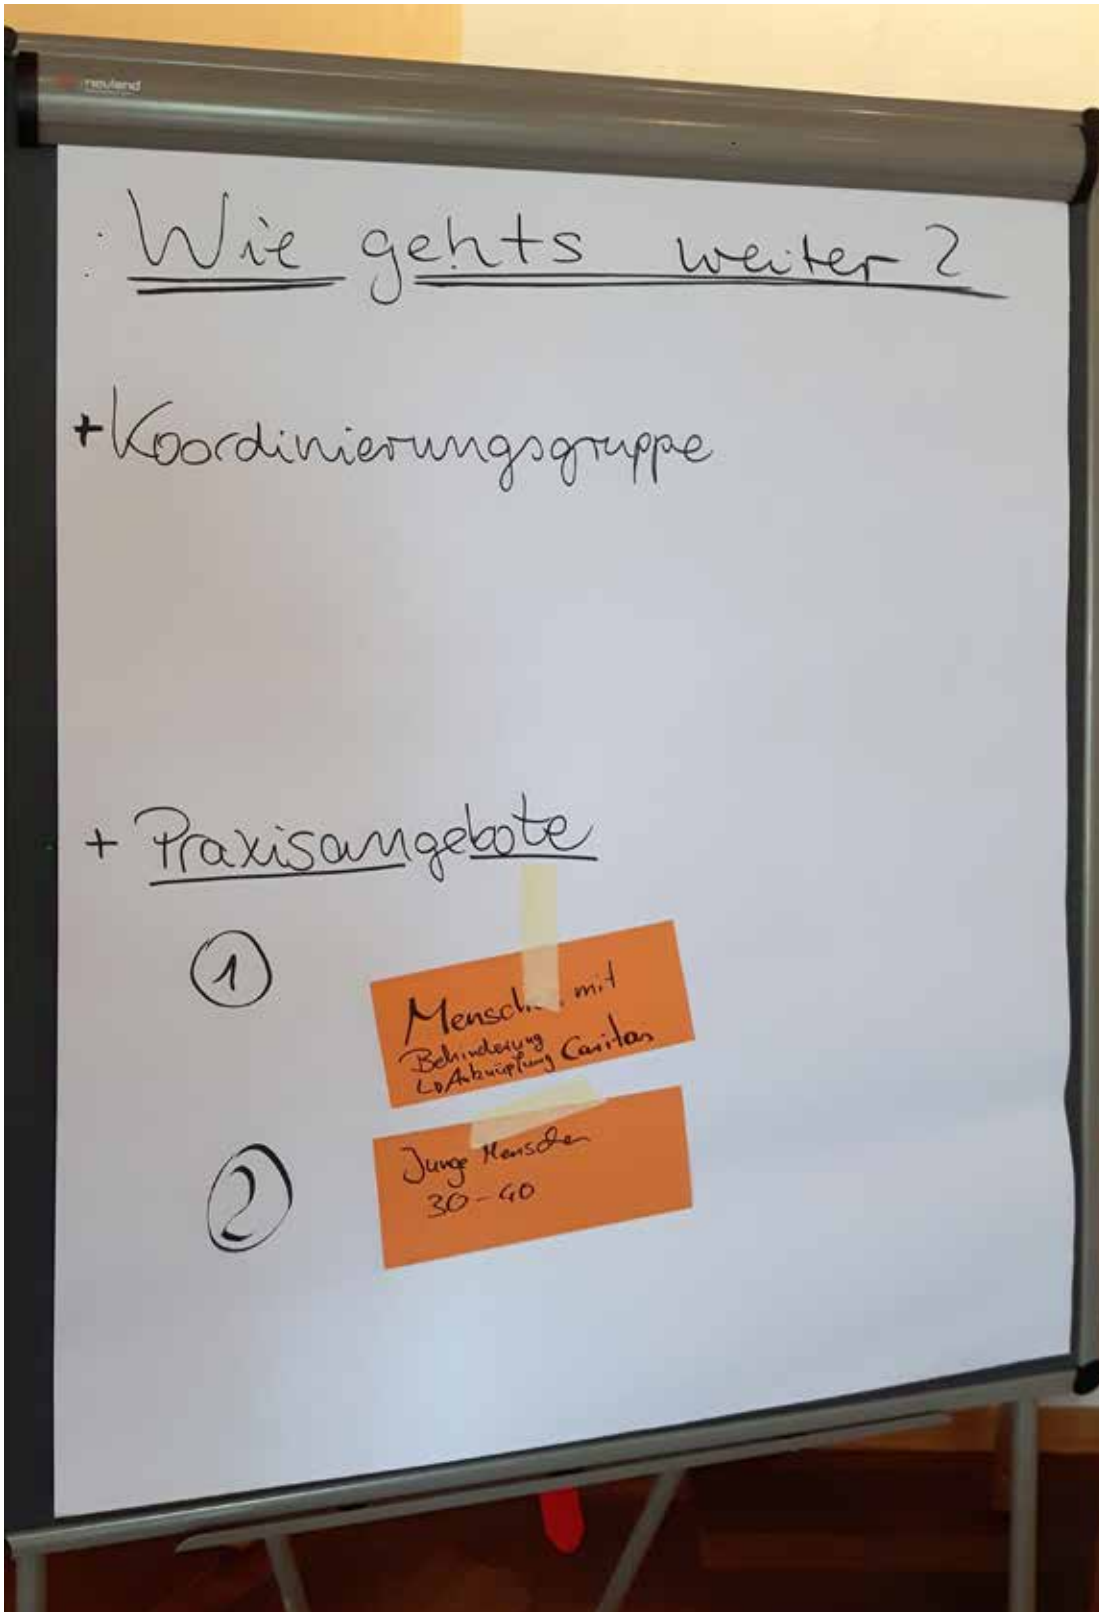 neuland
Wie gehts weiter?
+ Koordinierungsgruppe
+ Praxisangebote
1
Menschen mit
Behinderung
↳ Anknüpfung Caritas
2
Junge Menschen
30-40